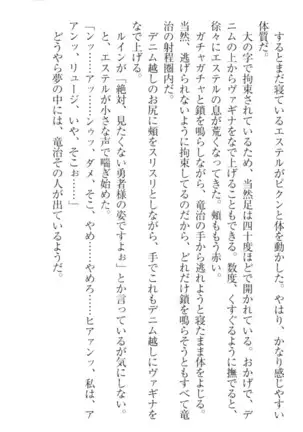 するとまだ寝ているエステルがビクンと体を動かした。やはり、かなり感じやすい
体質だ。
大の字で拘束されているため、当然足は四十度ほどで開かれている。おかげで、デ
ニムの上からヴァギナをなで上げることもできる。数度、くすぐるように撫でると、
徐々にエステルの息が荒くなってきた。頬ももう赤い。
ガチャガチャと鎖を鳴らしながら、竜治の手から逃れようと寝たまま体をよじる。
当然、逃げられないように拘束してるのだから、どれだけ鎖を鳴らそうともすべて竜
治の射程圏内だ。
デニム越しのお尻に頬をスリスリとしながら、手でこれもデニム越しにヴァギナを
なで上げる。
ルインが「絶対、見たくない勇者様の姿ですよぉ」とか言っているが気にしない。
と、エステルが小さな声で喘ぎ始めた。
「ンッ……アッ……ンゥッ、ダメ、そこ、やめ……やめろ……ヒアァンッ、私は、ア
アンッ、リュージ、いや、そこぉ……」
どうやら夢の中には、竜治その人が出ているようだ。